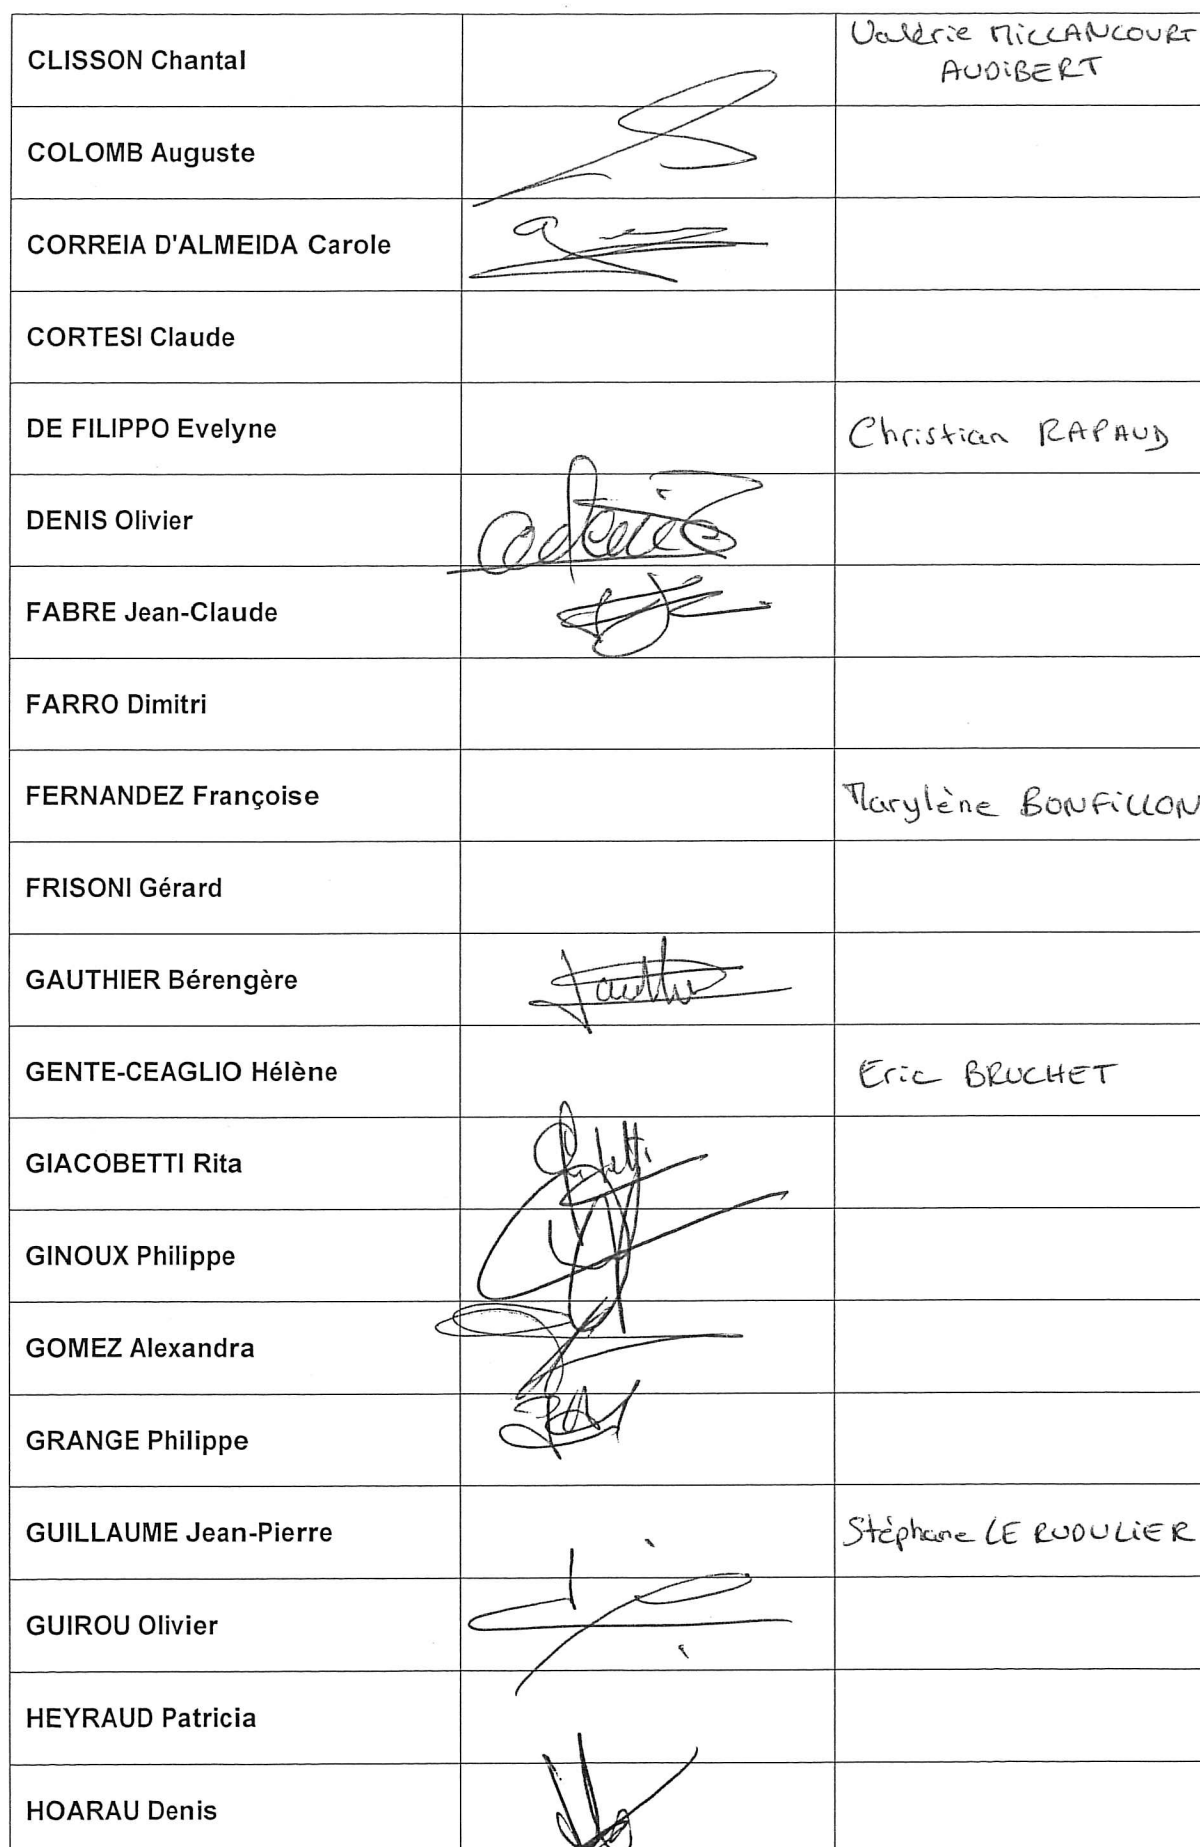 CLISSON Chantal
Valérie MILLANCOURT
AUDIBERT
COLOMB Auguste
CORREIA D'ALMEIDA Carole
CORTESI Claude
DE FILIPPO Evelyne
Christian RAPAUD
DENIS Olivier
FABRE Jean-Claude
FARRO Dimitri
FERNANDEZ Françoise
Marylène BONFILLON
FRISONI Gérard
GAUTHIER Bérengère
GENTE-CEAGLIO Hélène
Eric BRUCHET
GIACOBETTI Rita
GINOUX Philippe
GOMEZ Alexandra
GRANGE Philippe
GUILLAUME Jean-Pierre
Stéphane LE RUDULIER
GUIROU Olivier
HEYRAUD Patricia
HOARAU Denis